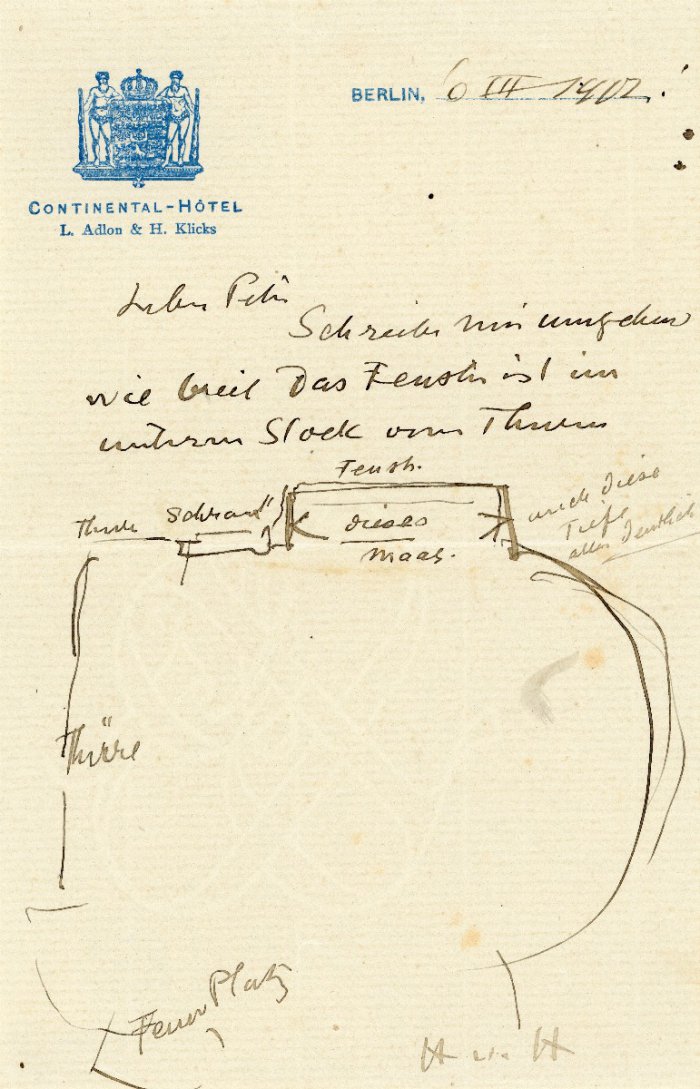 BERLIN, 6 III 1902
CONTINENTAL-HÔTEL
L. Adlon & H. Klicks
Lieber Peter
Schreibe mir umgehend
wie breit Das Fenster ist im
unteren Stock vom Thurm
Fenstr.
Thüre Schrank
dieses
Maas.
auch diese
Tiefe
alles Deutlich
Thüre
Feuer Platz
H v. H